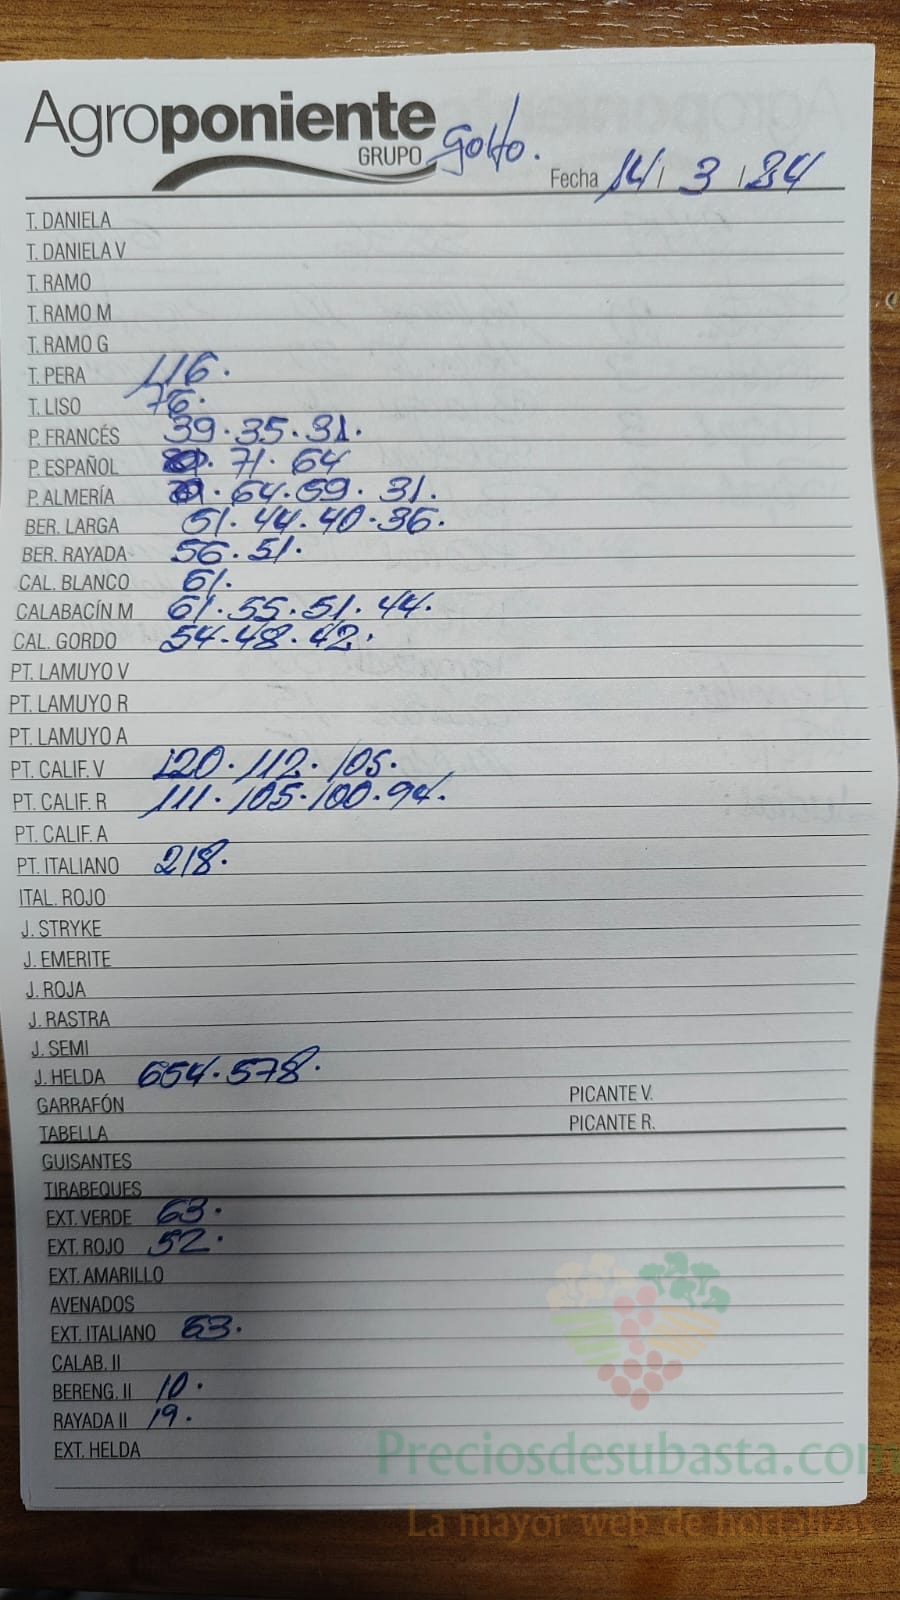 Agroponiente
GRUPO
Golfo.
Fecha 14/ 3 / 24
T. DANIELA
T. DANIELA V
T. RAMO
T. RAMO M
T. RAMO G
T. PERA 116.
T. LISO 76.
P. FRANCÉS 39. 35. 31.
P. ESPAÑOL 71. 64
P. ALMERÍA 64. 59. 31.
BER. LARGA 51. 44. 40. 36.
BER. RAYADA 56. 51.
CAL. BLANCO 61.
CALABACÍN M 61. 55. 51. 44.
CAL. GORDO 54. 48. 42.
PT. LAMUYO V
PT. LAMUYO R
PT. LAMUYO A
PT. CALIF. V 120. 112. 105.
PT. CALIF. R 111. 105. 100. 94.
PT. CALIF. A
PT. ITALIANO 218.
ITAL. ROJO
J. STRYKE
J. EMERITE
J. ROJA
J. RASTRA
J. SEMI
J. HELDA 654. 578.
GARRAFÓN PICANTE V.
TABELLA PICANTE R.
GUISANTES
TIRABEQUES
EXT. VERDE 63.
EXT. ROJO 52.
EXT. AMARILLO
AVENADOS
EXT. ITALIANO 63.
CALAB. II
BERENG. II 10.
RAYADA II 19.
EXT. HELDA
Preciosdesubasta.com
La mayor web de hortalizas